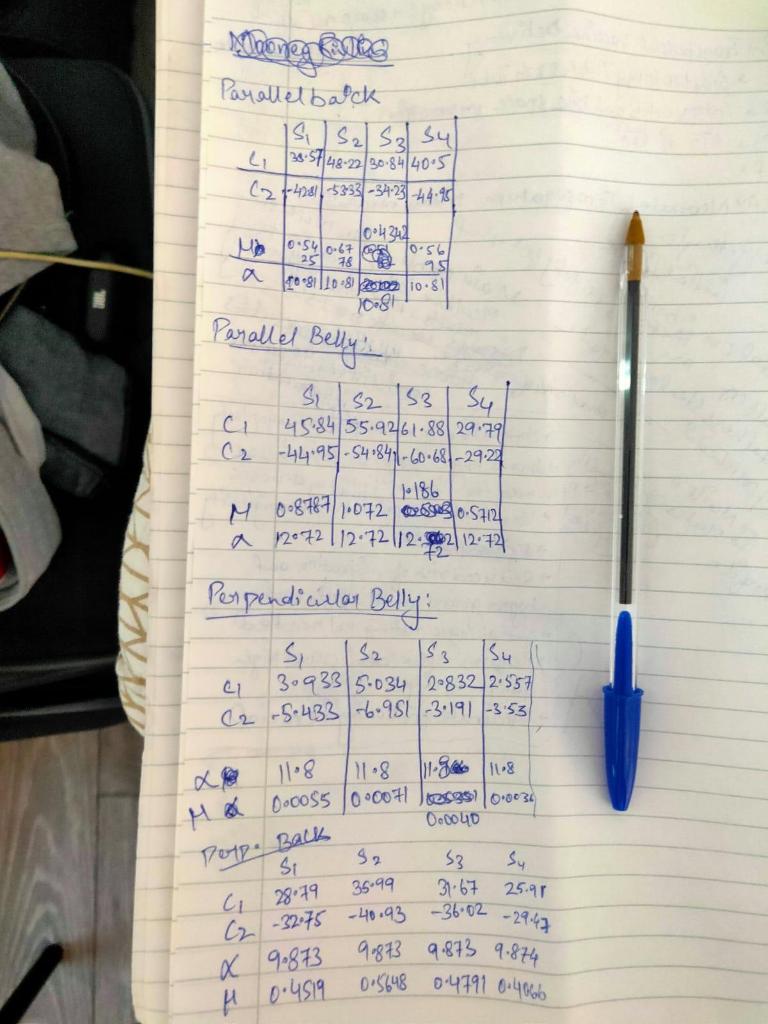 Parallel back
S1 S2 S3 S4
C1 38.57 48.22 30.84 40.5
C2 -42.81 -53.33 -34.23 -44.95
0.4342
μ 0.5425 0.6778 0.5695
α 10.81 10.81 10.81
10.81
Parallel Belly:
S1 S2 S3 S4
C1 45.84 55.92 61.88 29.79
C2 -44.95 -54.84 -60.68 -29.22
1.186
μ 0.8787 1.072 0.5712
α 12.72 12.72 12.72 12.72
Perpendicular Belly:
S1 S2 S3 S4
C1 3.933 5.034 2.832 2.557
C2 -5.433 -6.951 -3.191 -3.53
α 11.8 11.8 11.8 11.8
μ 0.0055 0.0071 0.0036
0.0040
Perp. Back
S1 S2 S3 S4
C1 28.79 35.99 31.67 25.91
C2 -32.75 -40.93 -36.02 -29.47
α 9.873 9.873 9.873 9.874
μ 0.4519 0.5648 0.4791 0.4066